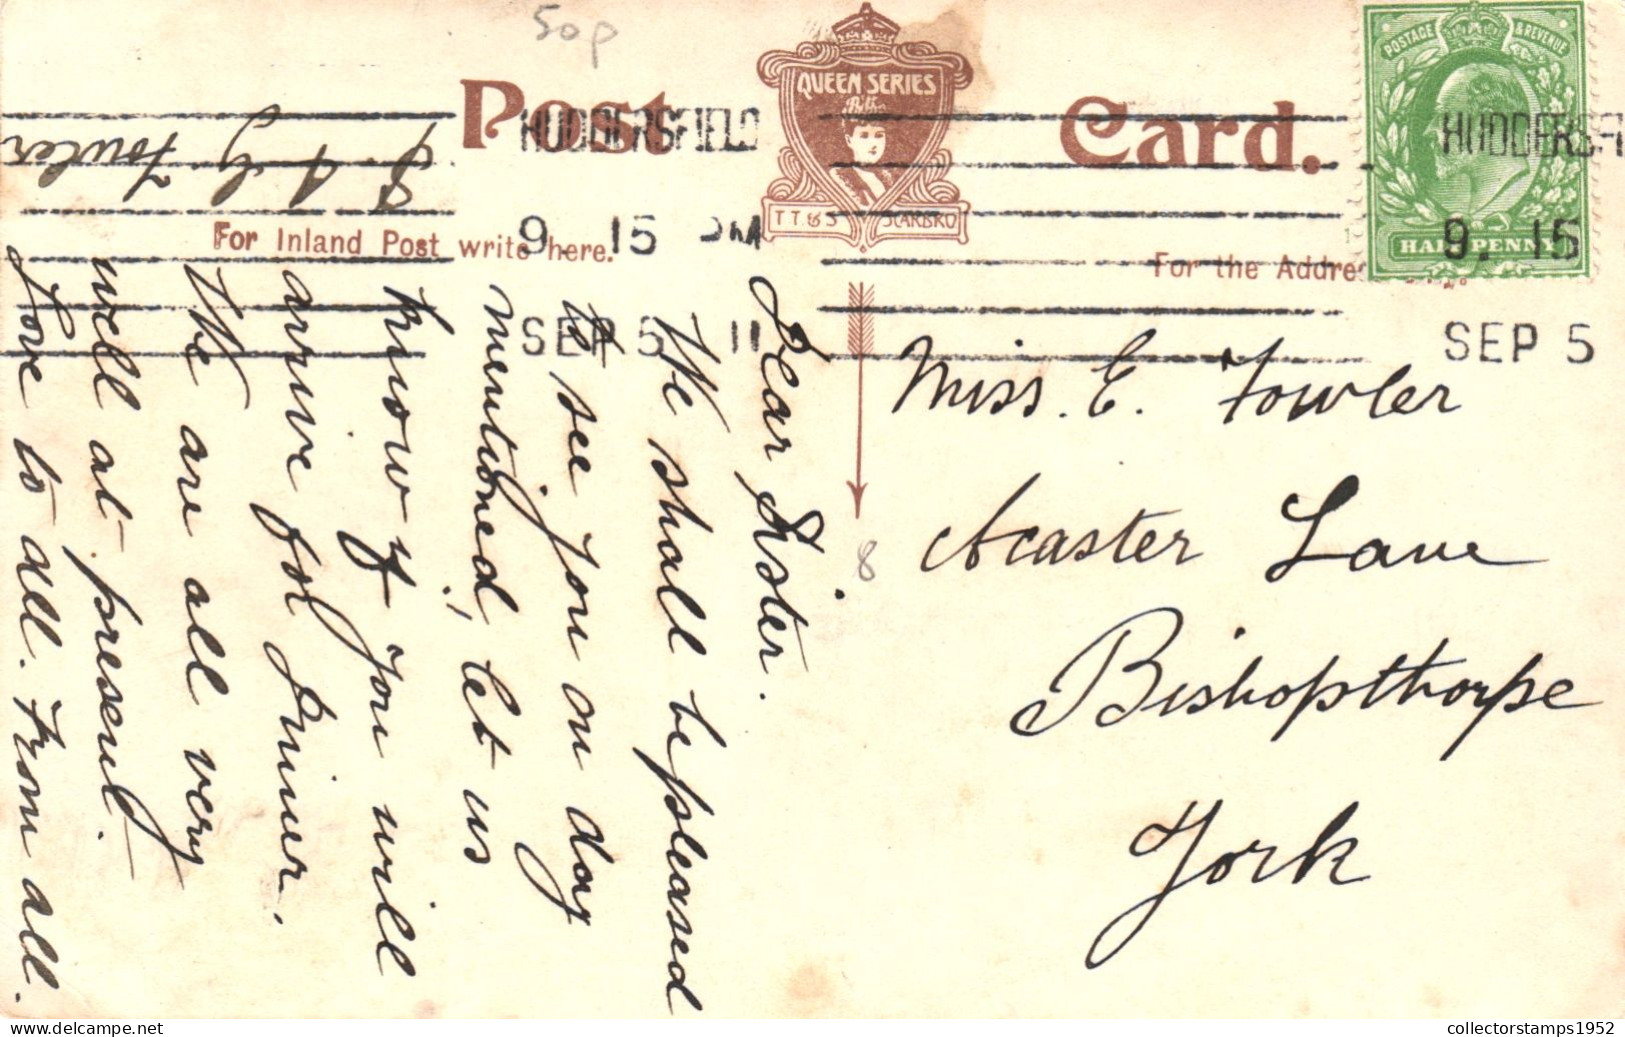 50p
Post Card.
QUEEN SERIES
T.T. & S SCARBRO
HUDDERSFIELD
9. 15 PM
SEP 5 11
POSTAGE & REVENUE
HALFPENNY
HUDDERSFI
9. 15
SEP 5
For Inland Post write here.
For the Addre
Dear Sister.
We shall be pleased
to see you on day
mentioned, let us
know if you will
arrive for dinner.
We are all very
well at present.
Love to all. From all.
Fowler
8
Miss. E. Fowler
Acaster Lane
Bishopthorpe
York
collectorstamps1952